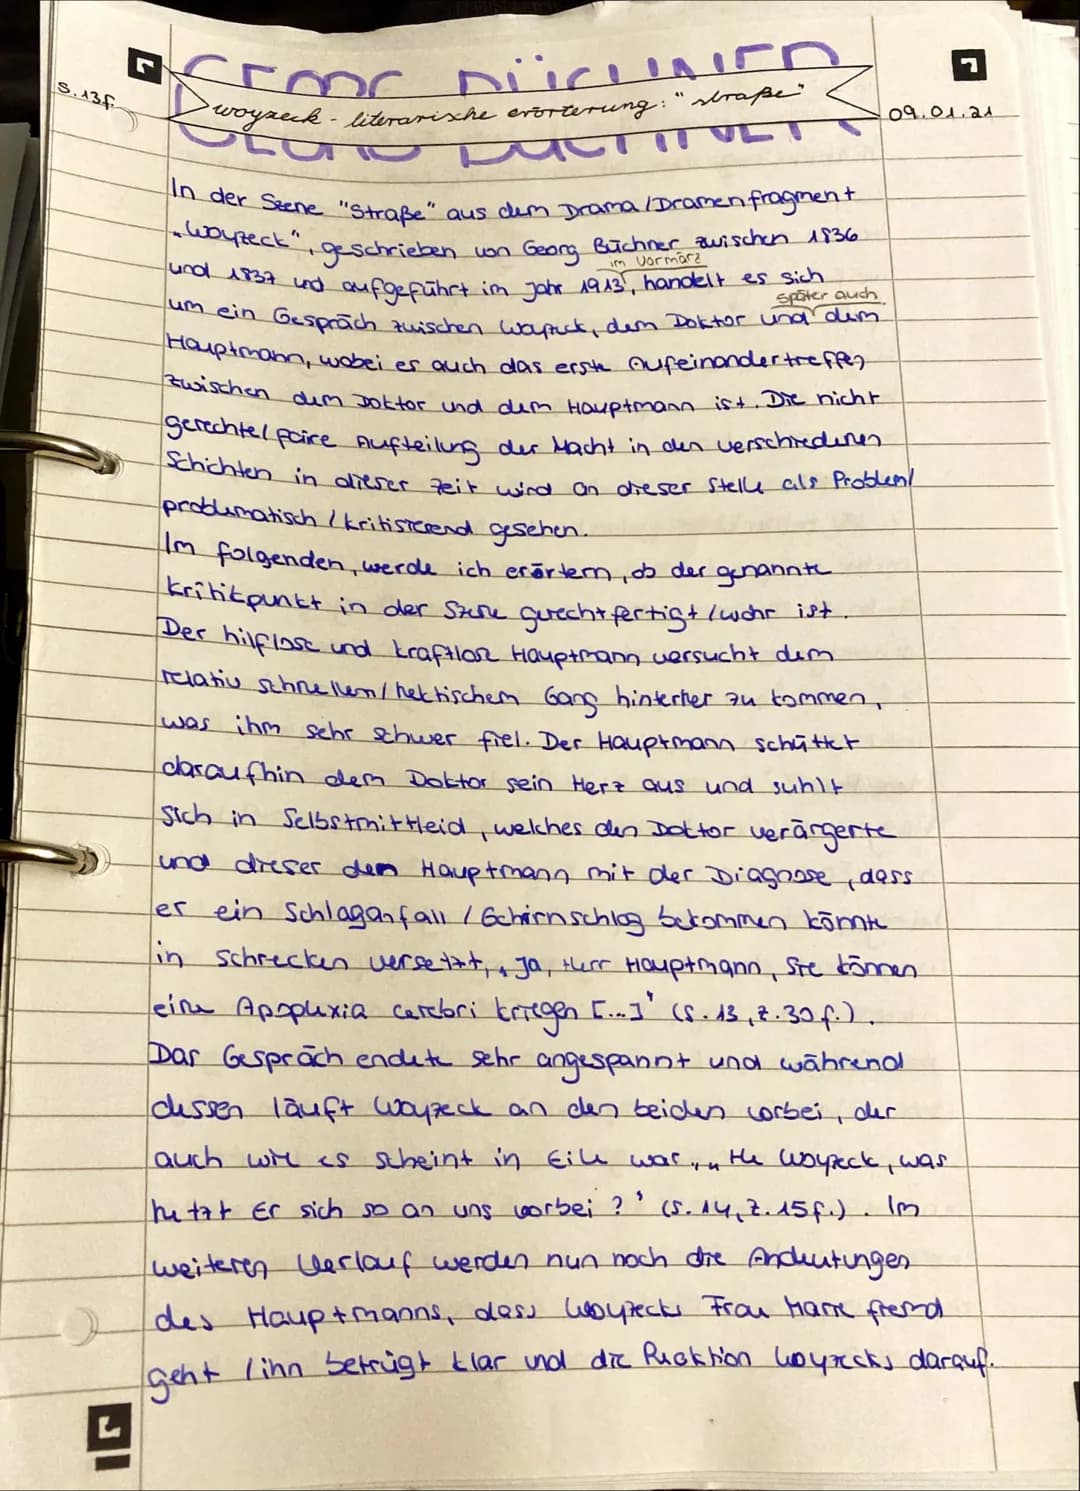 GEORG BÜCHNER
S. 13f.
woyzeck - literarische erörterung: "straße"
09.01.21
GEORG BÜCHNER
In der Szene "Straße" aus dem Drama/Dramenfragment
„Woyzeck", geschrieben von Georg Büchner zwischen 1836
im Vormärz
und 1837 und aufgeführt im Jahr 1913, handelt es sich
später auch
um ein Gespräch zwischen Woyzeck, dem Doktor und dem
Hauptmann, wobei es auch das erste Aufeinandertreffen
zwischen dem Doktor und dem Hauptmann ist. Die nicht
gerechte/faire Aufteilung der Macht in den verschiedenen
Schichten in dieser Zeit wird an dieser Stelle als Problem/
problematisch/kritisierend gesehen.
Im folgenden, werde ich erörtern, ob der genannte
Kritikpunkt in der Szene gerechtfertigt/wahr ist.
Der hilflose und kraftlose Hauptmann versucht dem
relativ schnellem/hektischem Gang hinterher zu kommen,
was ihm sehr schwer fiel. Der Hauptmann schüttet
daraufhin dem Doktor sein Herz aus und suhlt
sich in Selbstmittleid, welches den Doktor verärgerte
und dieser den Hauptmann mit der Diagnose, dass
er ein Schlaganfall/Gehirnschlag bekommen könnte
in Schrecken versetzt, „Ja, Herr Hauptmann, Sie können
eine Apoplexia cerebri kriegen [...]' (S. 13, Z. 30 f.).
Das Gespräch endete sehr angespannt und während
dessen läuft Woyzeck an den beiden vorbei, der
auch wie es scheint in Eile war, „He Woyzeck, was
hetzt Er sich so an uns vorbei?' (S. 14, Z. 15f.). Im
weiteren Verlauf werden nun noch die Andeutungen
des Hauptmanns, dass Woyzecks Frau Marie fremd
geht/ihn betrügt klar und die Reaktion Woyzecks darauf.